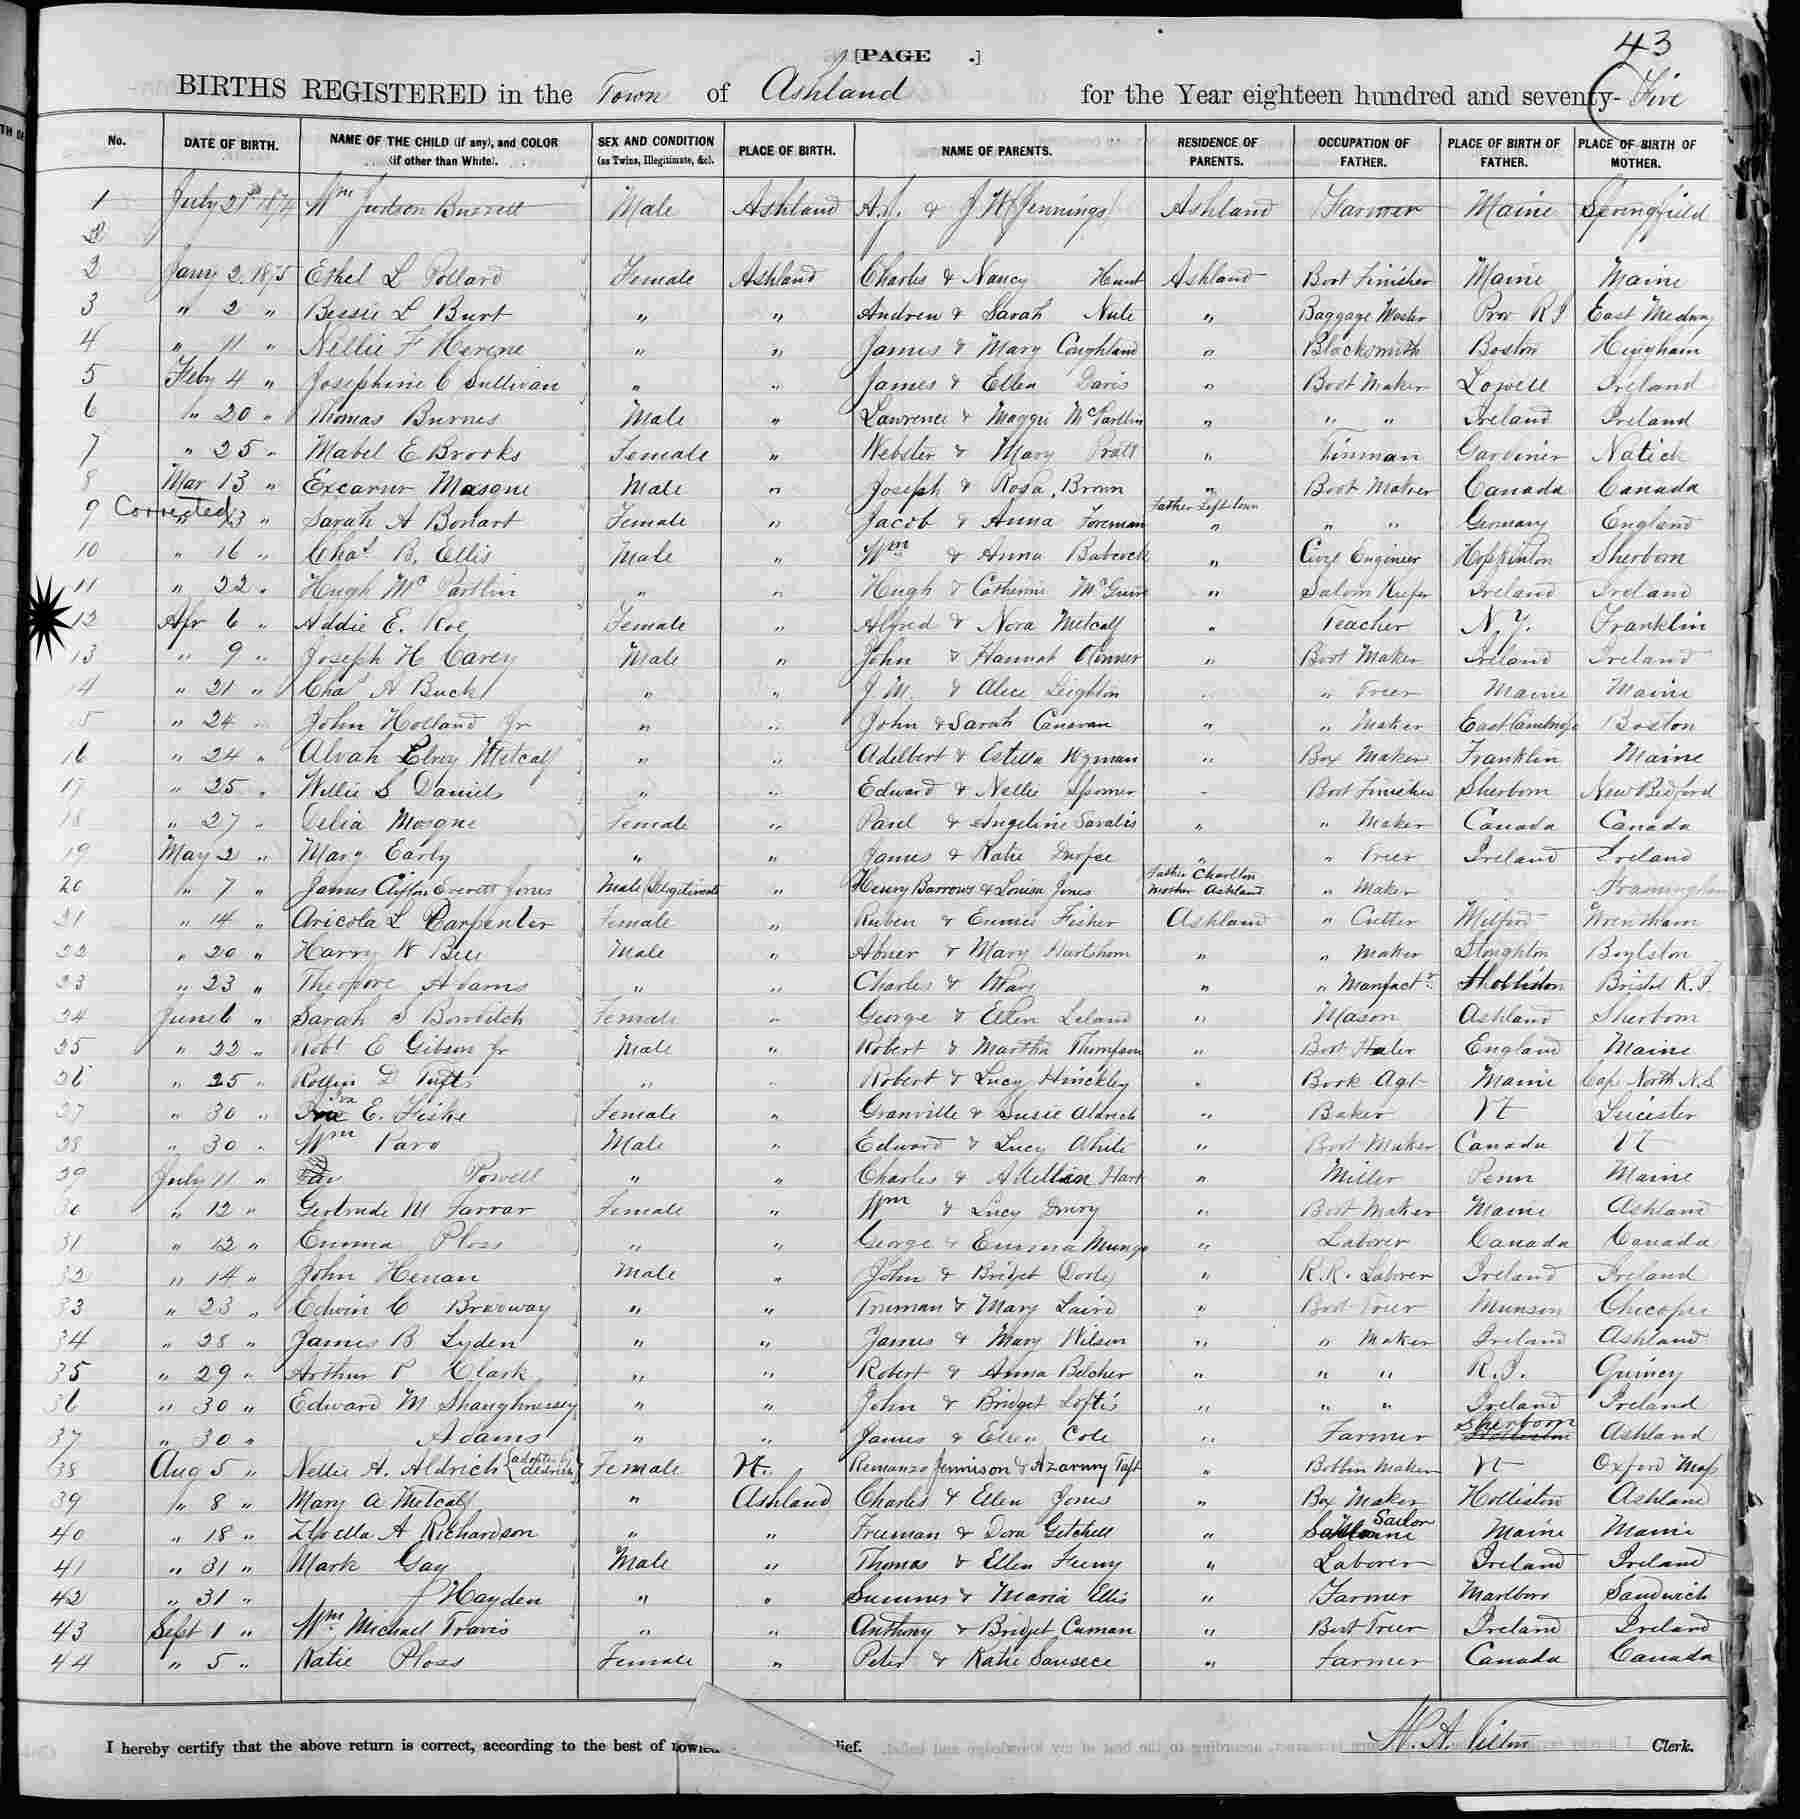 43
[PAGE .]
BIRTHS REGISTERED in the Town of Ashland for the Year eighteen hundred and seventy-Five
No. DATE OF BIRTH. NAME OF THE CHILD (if any), and COLOR (if other than White). SEX AND CONDITION (as Twins, Illegitimate, &c). PLACE OF BIRTH. NAME OF PARENTS. RESIDENCE OF PARENTS. OCCUPATION OF FATHER. PLACE OF BIRTH OF FATHER. PLACE OF BIRTH OF MOTHER.
1 July 21st 1874 Wm Judson Burrett Male Ashland A.J. & J W (Jennings) Ashland Farmer Maine Springfield
2
2 Jany 2. 1875 Ethel L Pollard Female Ashland Charles & Nancy Hunt Ashland Boot Finisher Maine Maine
3 " 2 " Bessie L Burt " " Andrew & Sarah Nute " Baggage Master Prov R I East Medway
4 " 11 " Nellie F Herene " " James & Mary Coughland " Blacksmith Boston Hingham
5 Feby 4 " Josephine C Sullivan " " James & Ellen Davis " Boot Maker Lowell Ireland
6 " 20 " Thomas Burnes Male " Lawrence & Maggie McPartlin " " " Ireland Ireland
7 " 25 " Mabel E Brooks Female " Webster & Mary Pratt " Tinman Gardiner Natick
8 Mar 13 " Excarur Masque Male " Joseph & Rosa Brown " Boot Maker Canada Canada
9 Corrected " 13 " Sarah A Bonart Female " Jacob & Anna Foreman Father Left town " " " Germany England
10 " 16 " Chas B. Ellis Male " Wm & Anna Babcock " Civil Engineer Hopkinton Sherborn
11 " 22 " Hugh Mc Partlin " " Hugh & Catherine McGuire " Saloon Keeper Ireland Ireland
12 Apr 6 " Addie E. Roe Female " Alfred & Nora Metcalf " Teacher N.Y. Franklin
13 " 9 " Joseph H Carey Male " John & Hannah OConner " Boot Maker Ireland Ireland
14 " 21 " Chas A Buck " " J. M. & Alice Leighton " " Treer Maine Maine
15 " 24 " John Holland Jr " " John & Sarah Canavan " " Maker East Cambridge Boston
16 " 24 " Alvah Elroy Metcalf " " Adelbert & Estella Wyman " Box Maker Franklin Maine
17 " 25 " Willie S Daniels " " Edward & Nellie Spooner " Boot Finisher Sherborn New Bedford
18 " 27 " Delia Mosque Female " Paul & Angeline Savalis " " Maker Canada Canada
19 May 2 " Mary Early " " James & Katie Durfee " " Treer Ireland Ireland
20 " 7 " James Clifton Everett Jones Male (Illegitimate " Henry Barrows & Louisa Jones Father Charlton Mother Ashland " Maker Framingham
21 " 14 " Aricola L Carpenter Female " Ruben & Emma Fisher Ashland " Cutter Milford Wrentham
22 " 20 " Harry W Bell Male " Abner & Mary Hartshorn " " Maker Stoughton Boylston
23 " 23 " Theodore Adams " " Charles & Mary " " Manfactr Holliston Bristol R.I.
24 June 6 " Sarah S Bowditch Female " George & Ellen Leland " Mason Ashland Sherborn
25 " 22 " Robt E Gibson Jr Male " Robert & Martha Thompson " Boot Healer England Maine
26 " 25 " Rollin D Tufts " " Robert & Lucy Hinckley " Book Agt Maine Cape North N.S
27 " 30 " Iva E. Fiske Female " Granville & Susie Aldrich " Baker Vt Leicester
28 " 30 " Wm Paro Male " Edward & Lucy White " Boot Maker Canada Vt
29 July 11 " Powell " " Charles & Adellian Hart " Miller Penn Maine
30 " 12 " Gertrude M Farrar Female " Wm & Lucy Drury " Boot Maker Maine Ashland
31 " 12 " Emma Ploss " " George & Emma Mungo " Laborer Canada Canada
32 " 14 " John Henan Male " John & Bridget Dooly " R.R. Laborer Ireland Ireland
33 " 23 " Edwin C Broadway " " Truman & Mary Laird " Boot Treer Munson Chicopee
34 " 28 " James B Lyden " " James & Mary Wilson " " Maker Ireland Ashland
35 " 29 " Arthur P Clark " " Robert & Anna Belcher " " " R.I. Quincy
36 " 30 " Edward M Shaughnessey " " John & Bridget Loftis " " " Ireland Ireland
37 " 30 " Adams " " James & Ellen Cole " Farmer Sherborn Ashland
38 Aug 5 " Nellie A. Aldrich (adopted by Aldrich) Female Vt. Remanzo Jennison & Azarmy Taft " Bobbin Maker Vt Oxford Mass
39 " 8 " Mary A Metcalf " Ashland Charles & Ellen Jones " Box Maker Holliston Ashland
40 " 18 " Luella A Richardson " " Freeman & Dora Getchell " Sailor Maine Maine
41 " 31 " Mark Gay Male " Thomas & Ellen Feeny " Laborer Ireland Ireland
42 " 31 " Hayden " " Sumner & Maria Ellis " Farmer Marlboro Sandwich
43 Sept 1 " Wm. Michael Travis " " Anthony & Bridget Cuman " Boot Treer Ireland Ireland
44 " 5 " Katie Ploss Female " Peter & Katie Sausece " Farmer Canada Canada
I hereby certify that the above return is correct, according to the best of lief. H. A. Tilton Clerk.